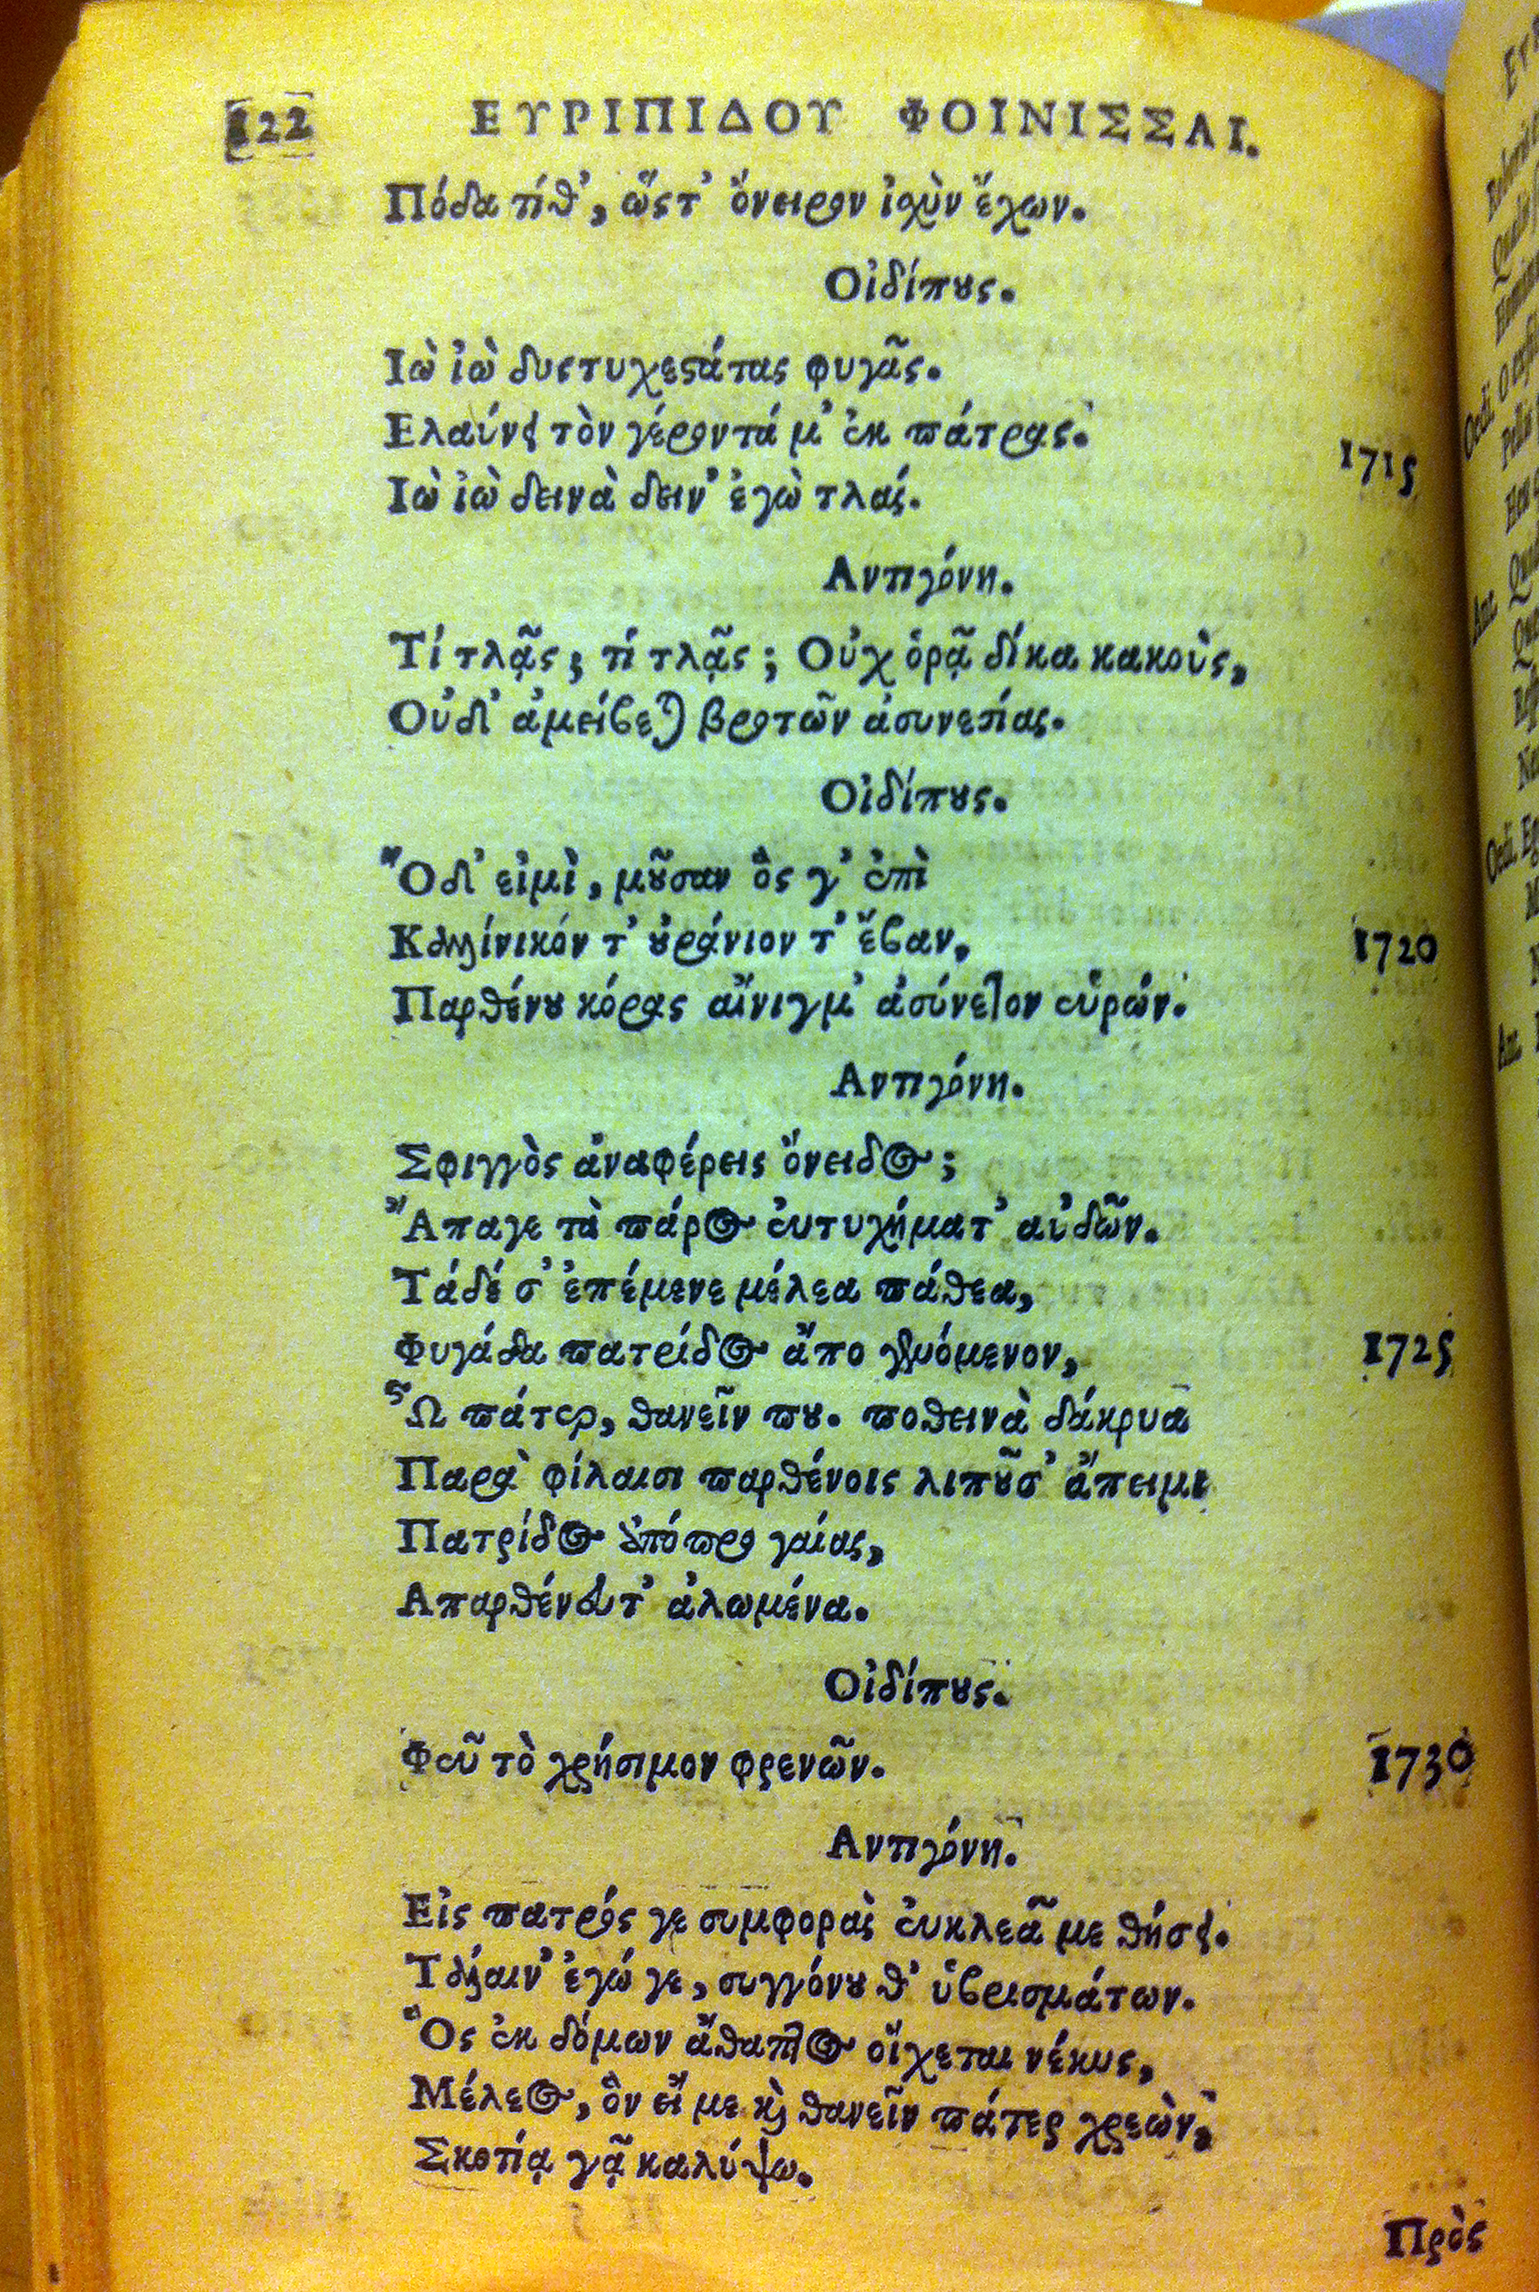 122 ΕΥΡΙΠΙΔΟΥ ΦΟΙΝΙΣΣΑΙ.
Πόδα τίθ', ὥςτ' ὄνειρον ἰχὺν ἔχων.
Οἰδίπους.
Ιὼ ἰὼ δυςτυχεστάτας φυγᾶς.
Ελαύνει τὸν γέροντά μ' ἐκ πάτρας. 1715
Ιὼ ἰὼ δεινὰ δειν' ἐγὼ τλάς.
Αντιγόνη.
Τί τλᾷς; τί τλᾷς; Οὐχ ὁρᾷ δίκα κακοὺς,
Οὐδ' ἀμείβεται βροτῶν ἀσυνεσίας.
Οἰδίπους.
Ὅδ' εἰμὶ, μοῦσαν ὃς γ' ἐπὶ
Καλλίνικόν τ' οὐράνιον τ' ἔβαν, 1720
Παρθένου κόρας αἴνιγμ' ἀσύνετον εὑρών.
Αντιγόνη.
Σφιγγὸς ἀναφέρεις ὄνειδος;
Ἄπαγε τὰ πάρος εὐτυχήματ' αὐδῶν.
Τάδέ σ' ἐπέμενε μέλεα πάθεα,
Φυγάδα πατρίδος ἄπο γενόμενον, 1725
Ὦ πάτερ, θανεῖν που. ποθεινὰ δάκρυα
Παρὰ φίλαισι παρθένοις λιποῦσ' ἄπειμι
Πατρίδος ἀπόπρο γαίας,
Απαρθένευτ' ἀλωμένα.
Οἰδίπους.
Φεῦ τὸ χρήσιμον φρενῶν. 1730
Αντιγόνη.
Εἰς πατρός γε συμφορὰς εὐκλεᾶ με θήσει.
Τάλαιν' ἐγώ γε, συγγόνου θ' ὑβρισμάτων.
Ὃς ἐκ δόμων ἄθαπτος οἴχεται νέκυς,
Μέλεος, ὃν εἴ με καὶ θανεῖν πάτερ χρεὼν,
Σκοτίᾳ γᾷ καλύψω.
Πρὸς